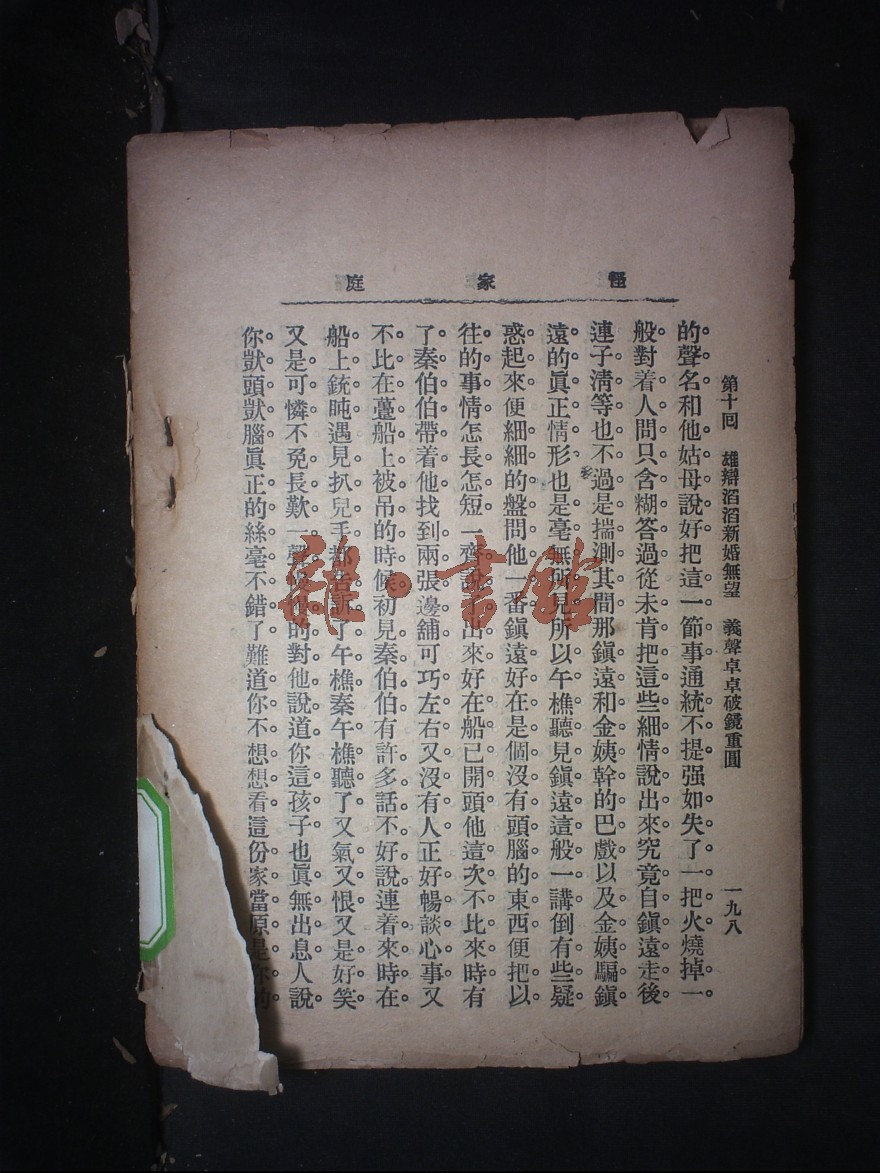 怪家庭
第十回 雄辯滔滔新婚無望 義聲卓卓破鏡重圓 一九八
的聲名和他姑母說好把這一節事通統不提强如失了一把火燒掉一
般對着人問只含糊答過從未肯把這些細情說出來究竟自鎭遠走後
連子淸等也不過是揣測其間那鎭遠和金姨幹的巴戲以及金姨騙鎭
遠的眞正情形也是毫無所見所以午樵聽見鎭遠這般一講倒有些疑
惑起來便細細的盤問他一番鎭遠好在是個沒有頭腦的東西便把以
往的事情怎長怎短一齊說出來好在船已開頭他這次不比來時有
了秦伯伯帶着他找到兩張邊舖可巧左右又沒有人正好暢談心事又
不比在躉船上被吊的時候初見秦伯伯有許多話不好說連着來時在
船上銃盹遇見扒兒手都告訴了午樵秦午樵聽了又氣又恨又是好笑
又是可憐不免長歎一聲的對他說道你這孩子也眞無出息人說
你獃頭獃腦眞正的絲毫不錯了難道你不想想看這份家當原是你的
雜·書館